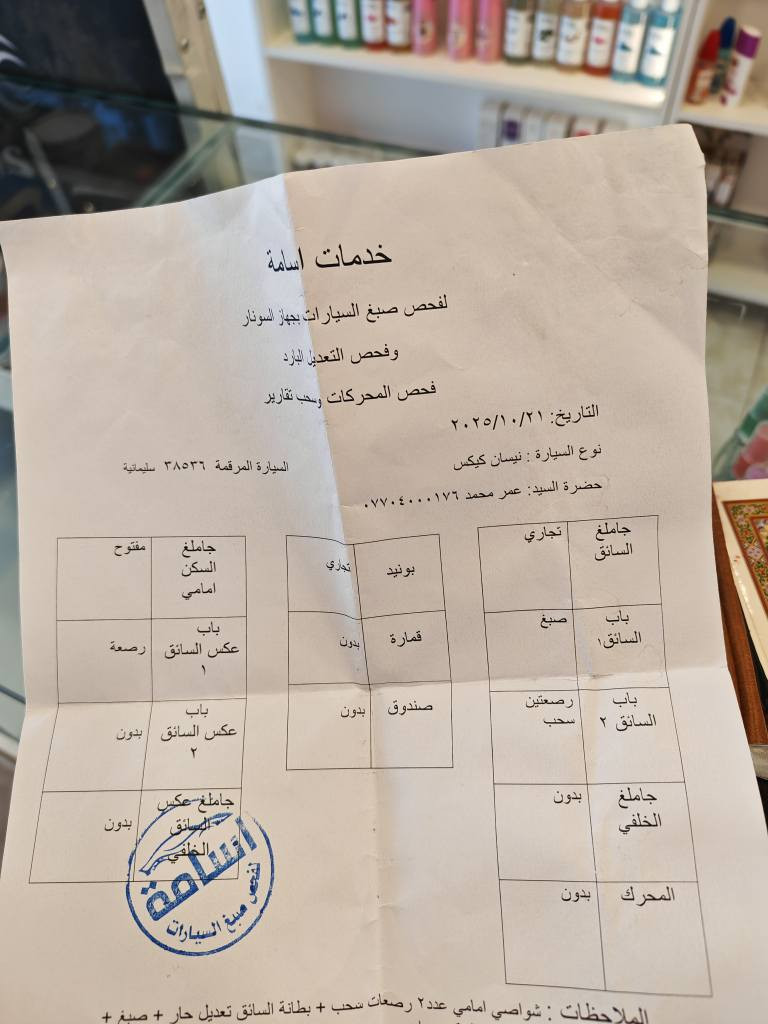 خدمات اسامة
لفحص صبغ السيارات بجهاز السونار
وفحص التعديل البارد
فحص المحركات وسحب تقارير
التاريخ: ٢٠٢٥/١٠/٢١
نوع السيارة : نيسان كيكس
السيارة المرقمة ٣٨٥٣٦ سليمانية
حضرة السيد: عمر محمد ٠٧٧٠٤٠٠٠١٧٦
جاملغ السائق تجاري
باب السائق١ صبغ
باب السائق ٢ رصعتين سحب
جاملغ الخلفي بدون
المحرك بدون
بونيد تجاري
قمارة بدون
صندوق بدون
جاملغ السكن امامي مفتوح
باب عكس السائق ١ رصعة
باب عكس السائق ٢ بدون
جاملغ عكس السائق الخلفي بدون
اسامة
لفحص صبغ السيارات
الملاحظات : شواصي امامي عدد٢ رصعات سحب + بطانة السائق تعديل حار + صبغ +